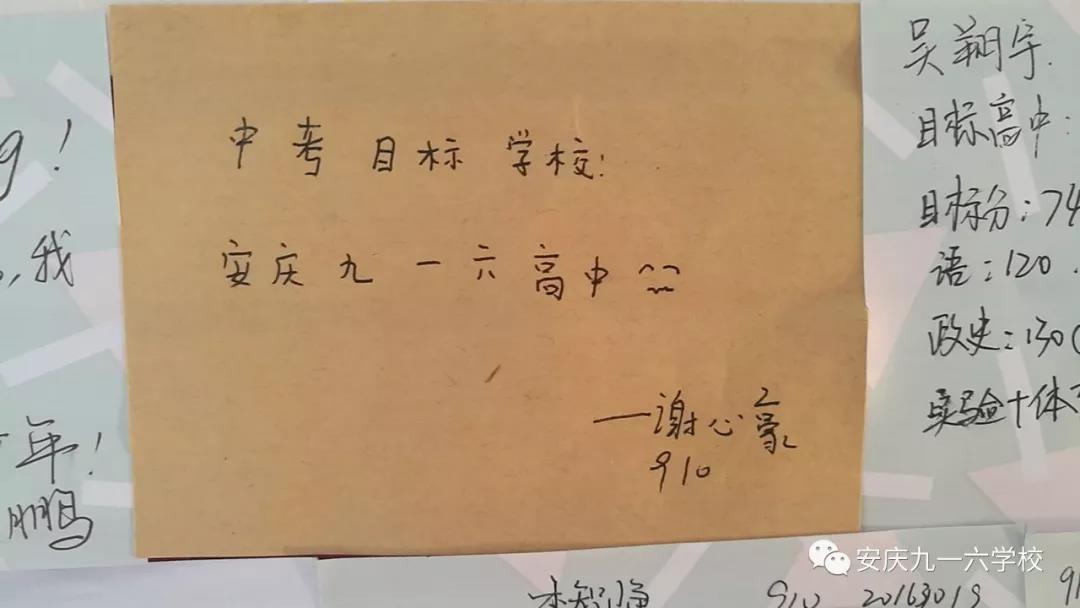 中考 目标 学校:
安庆九一六高中
——谢心豪
910
吴翔宇
目标高中:
目标分:74
语:120
政史:130(
实验十体
9!
,我
年!
鹏
910 20163019
安庆九一六学校